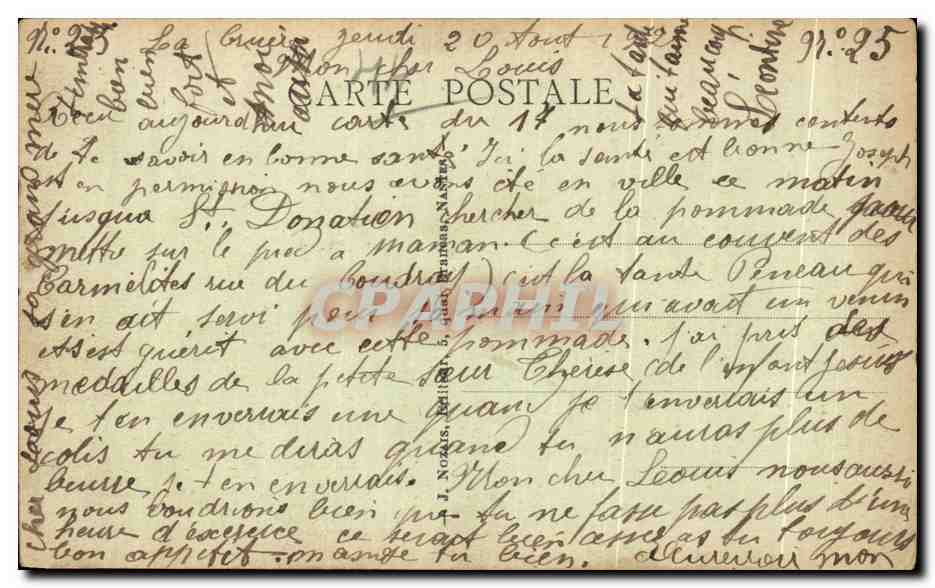 N° 25 La Cruère jeudi 20 Aout N° 25
Mon cher Louis
CARTE POSTALE
Recu aujourdhui carte du 17 nous sommes contents
de te savoir en bonne santé Ici la santé est bonne Joseph
est en permission nous avons été en ville ce matin
jusqua St. Donatien chercher de la pommade pour
mettre sur le pied a maman. (c'est au couvent des
Carmelites rue du Coudray) c'est la tante Peneau qui
s'en ait servi pour la main qui avait un venin
et s'est guérit avec cette pommade. j'ai pris des
medailles de la petite sœur Thérèse de l'enfant Jesus
Je t'en enverrais une quand je t'enverrais un
colis tu me diras quand tu n'auras plus de
beurre je t'en enverrais. Mon cher Louis nous aussi
nous voudrions bien que tu ne fasse pas plus d'une
heure d'exercice ce serait bien assez as tu toujours
bon appétit mange tu bien. Aurevoir mon
cher Louis ta grand mère
t'embrasse
bien fort
et
ta tante
beaucoup
Léontine
J. Nozais, Editeur, 5, quai Brancas, Nantes
CPAPHIL